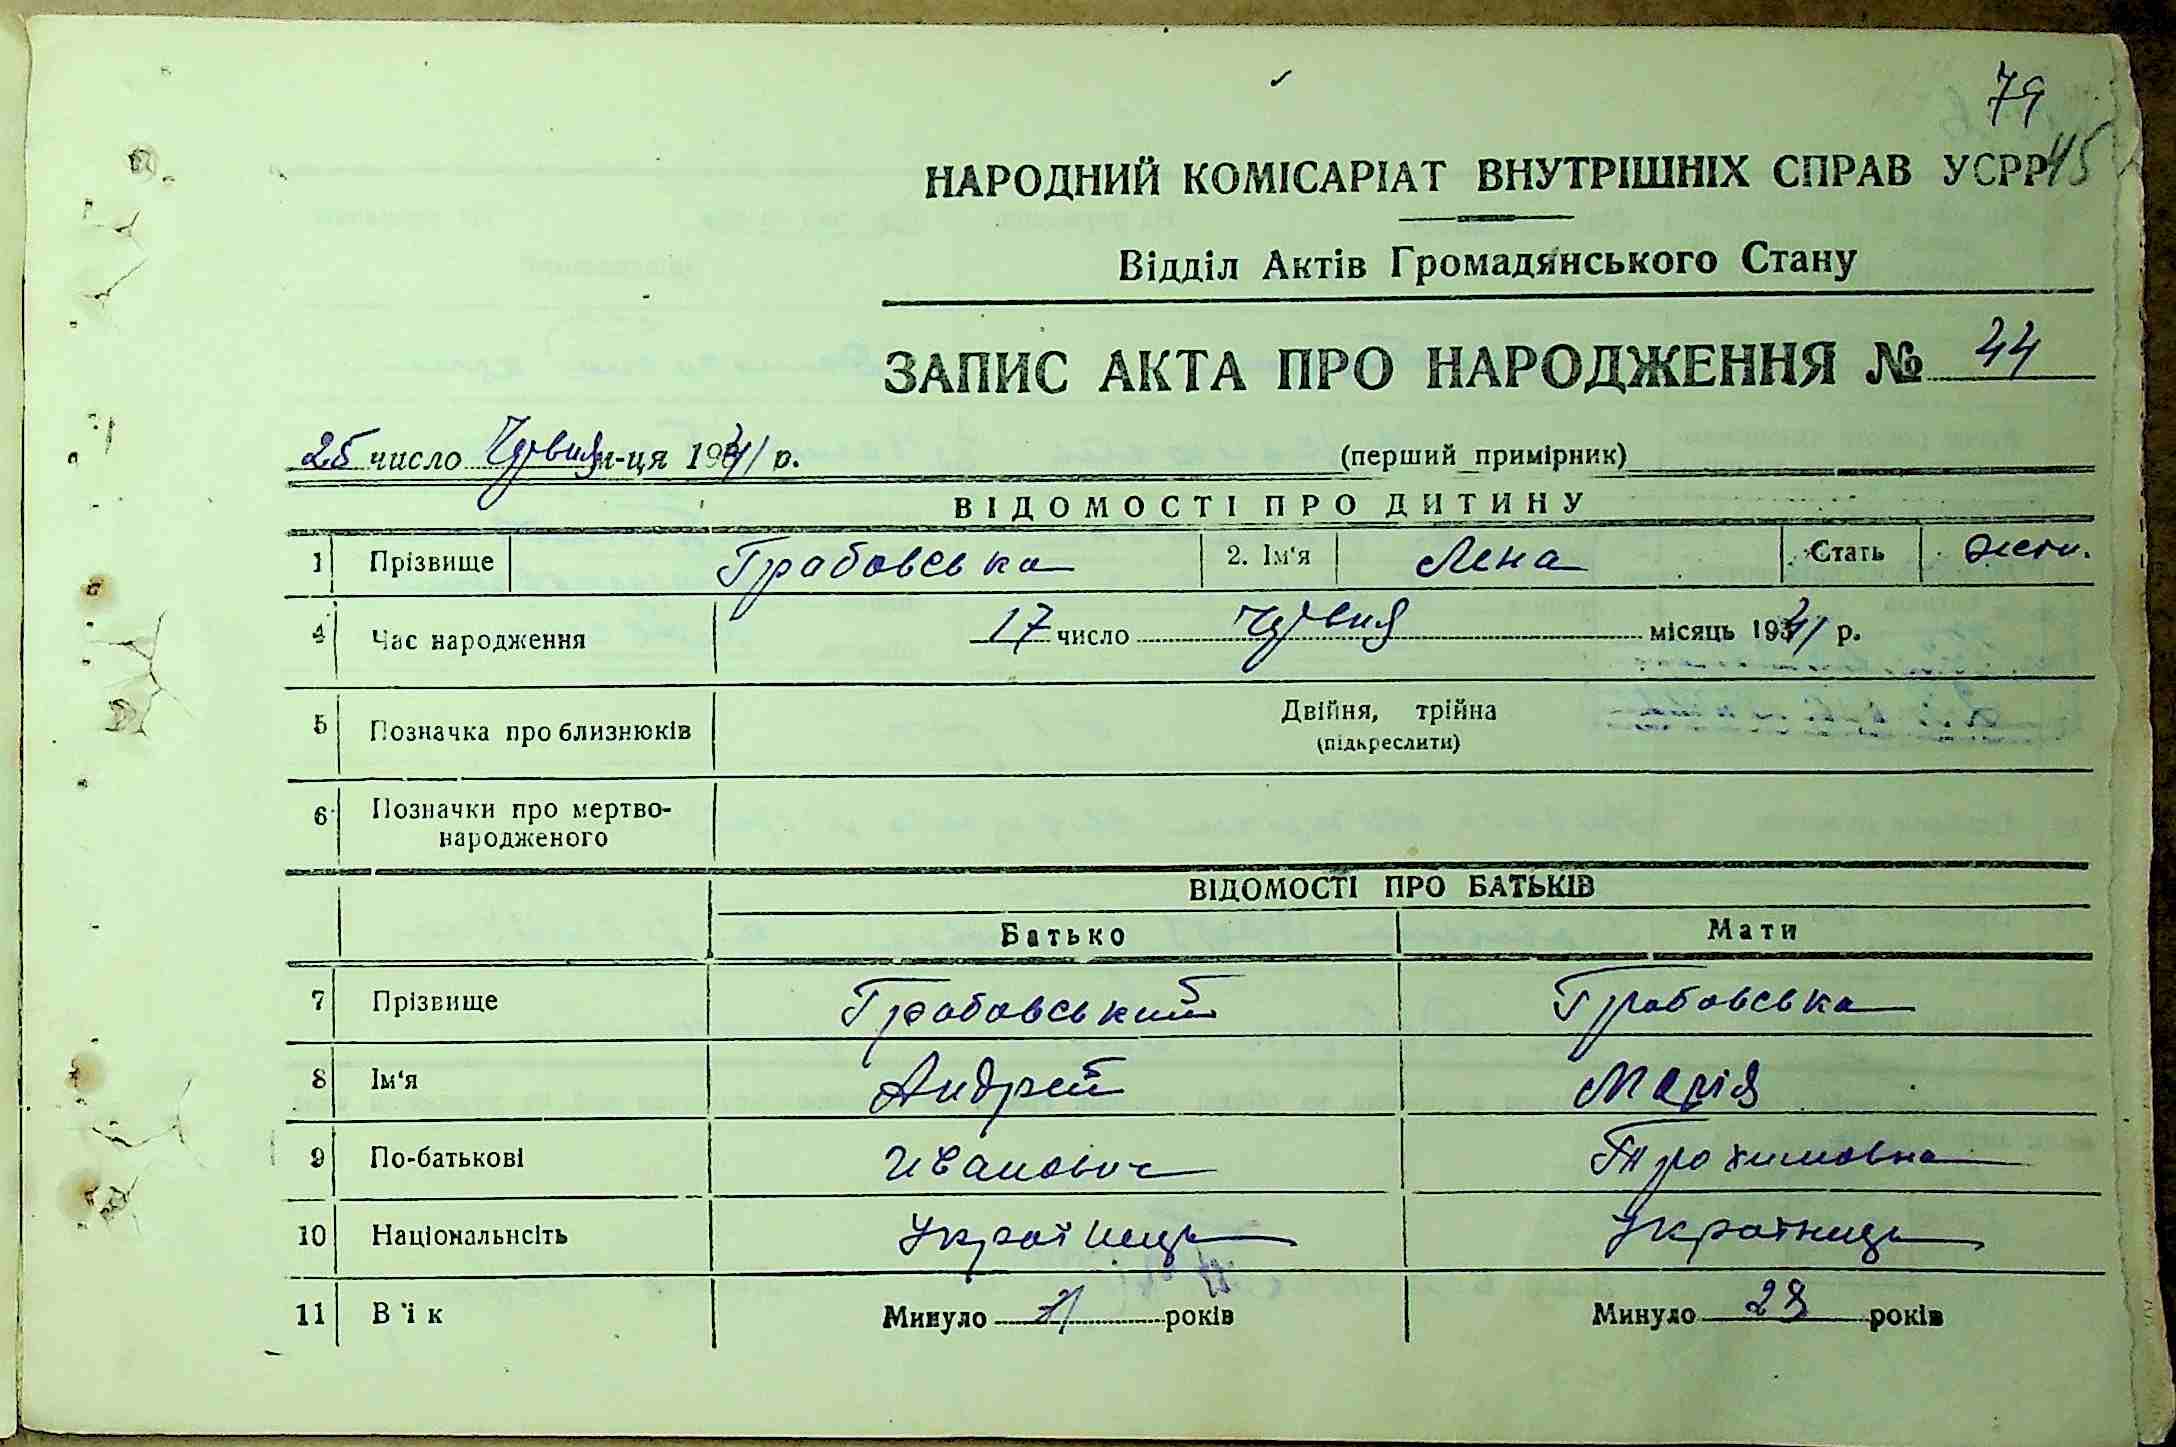 79
45
НАРОДНИЙ КОМІСАРІАТ ВНУТРІШНІХ СПРАВ УСРР
Відділ Актів Громадянського Стану
ЗАПИС АКТА ПРО НАРОДЖЕННЯ № 44
25 число Чрвня м-ця 1941 р. (перший примірник)
ВІДОМОСТІ ПРО ДИТИНУ
1 Прізвище Грабовська 2. Ім'я Лєна Стать жен.
4 Час народження 17 число Чрвня місяць 1941 р.
5 Позначка про близнюків Двійня, трійна
(підкреслити)
6 Позначки про мертво-
народженого
ВІДОМОСТІ ПРО БАТЬКІВ
Батько Мати
7 Прізвище Грабовський Грабовська
8 Ім'я Андрей Марія
9 По-батькові Иванович Трохимовна
10 Національнсіть Українець Українець
11 В'ік Минуло років Минуло 28 років